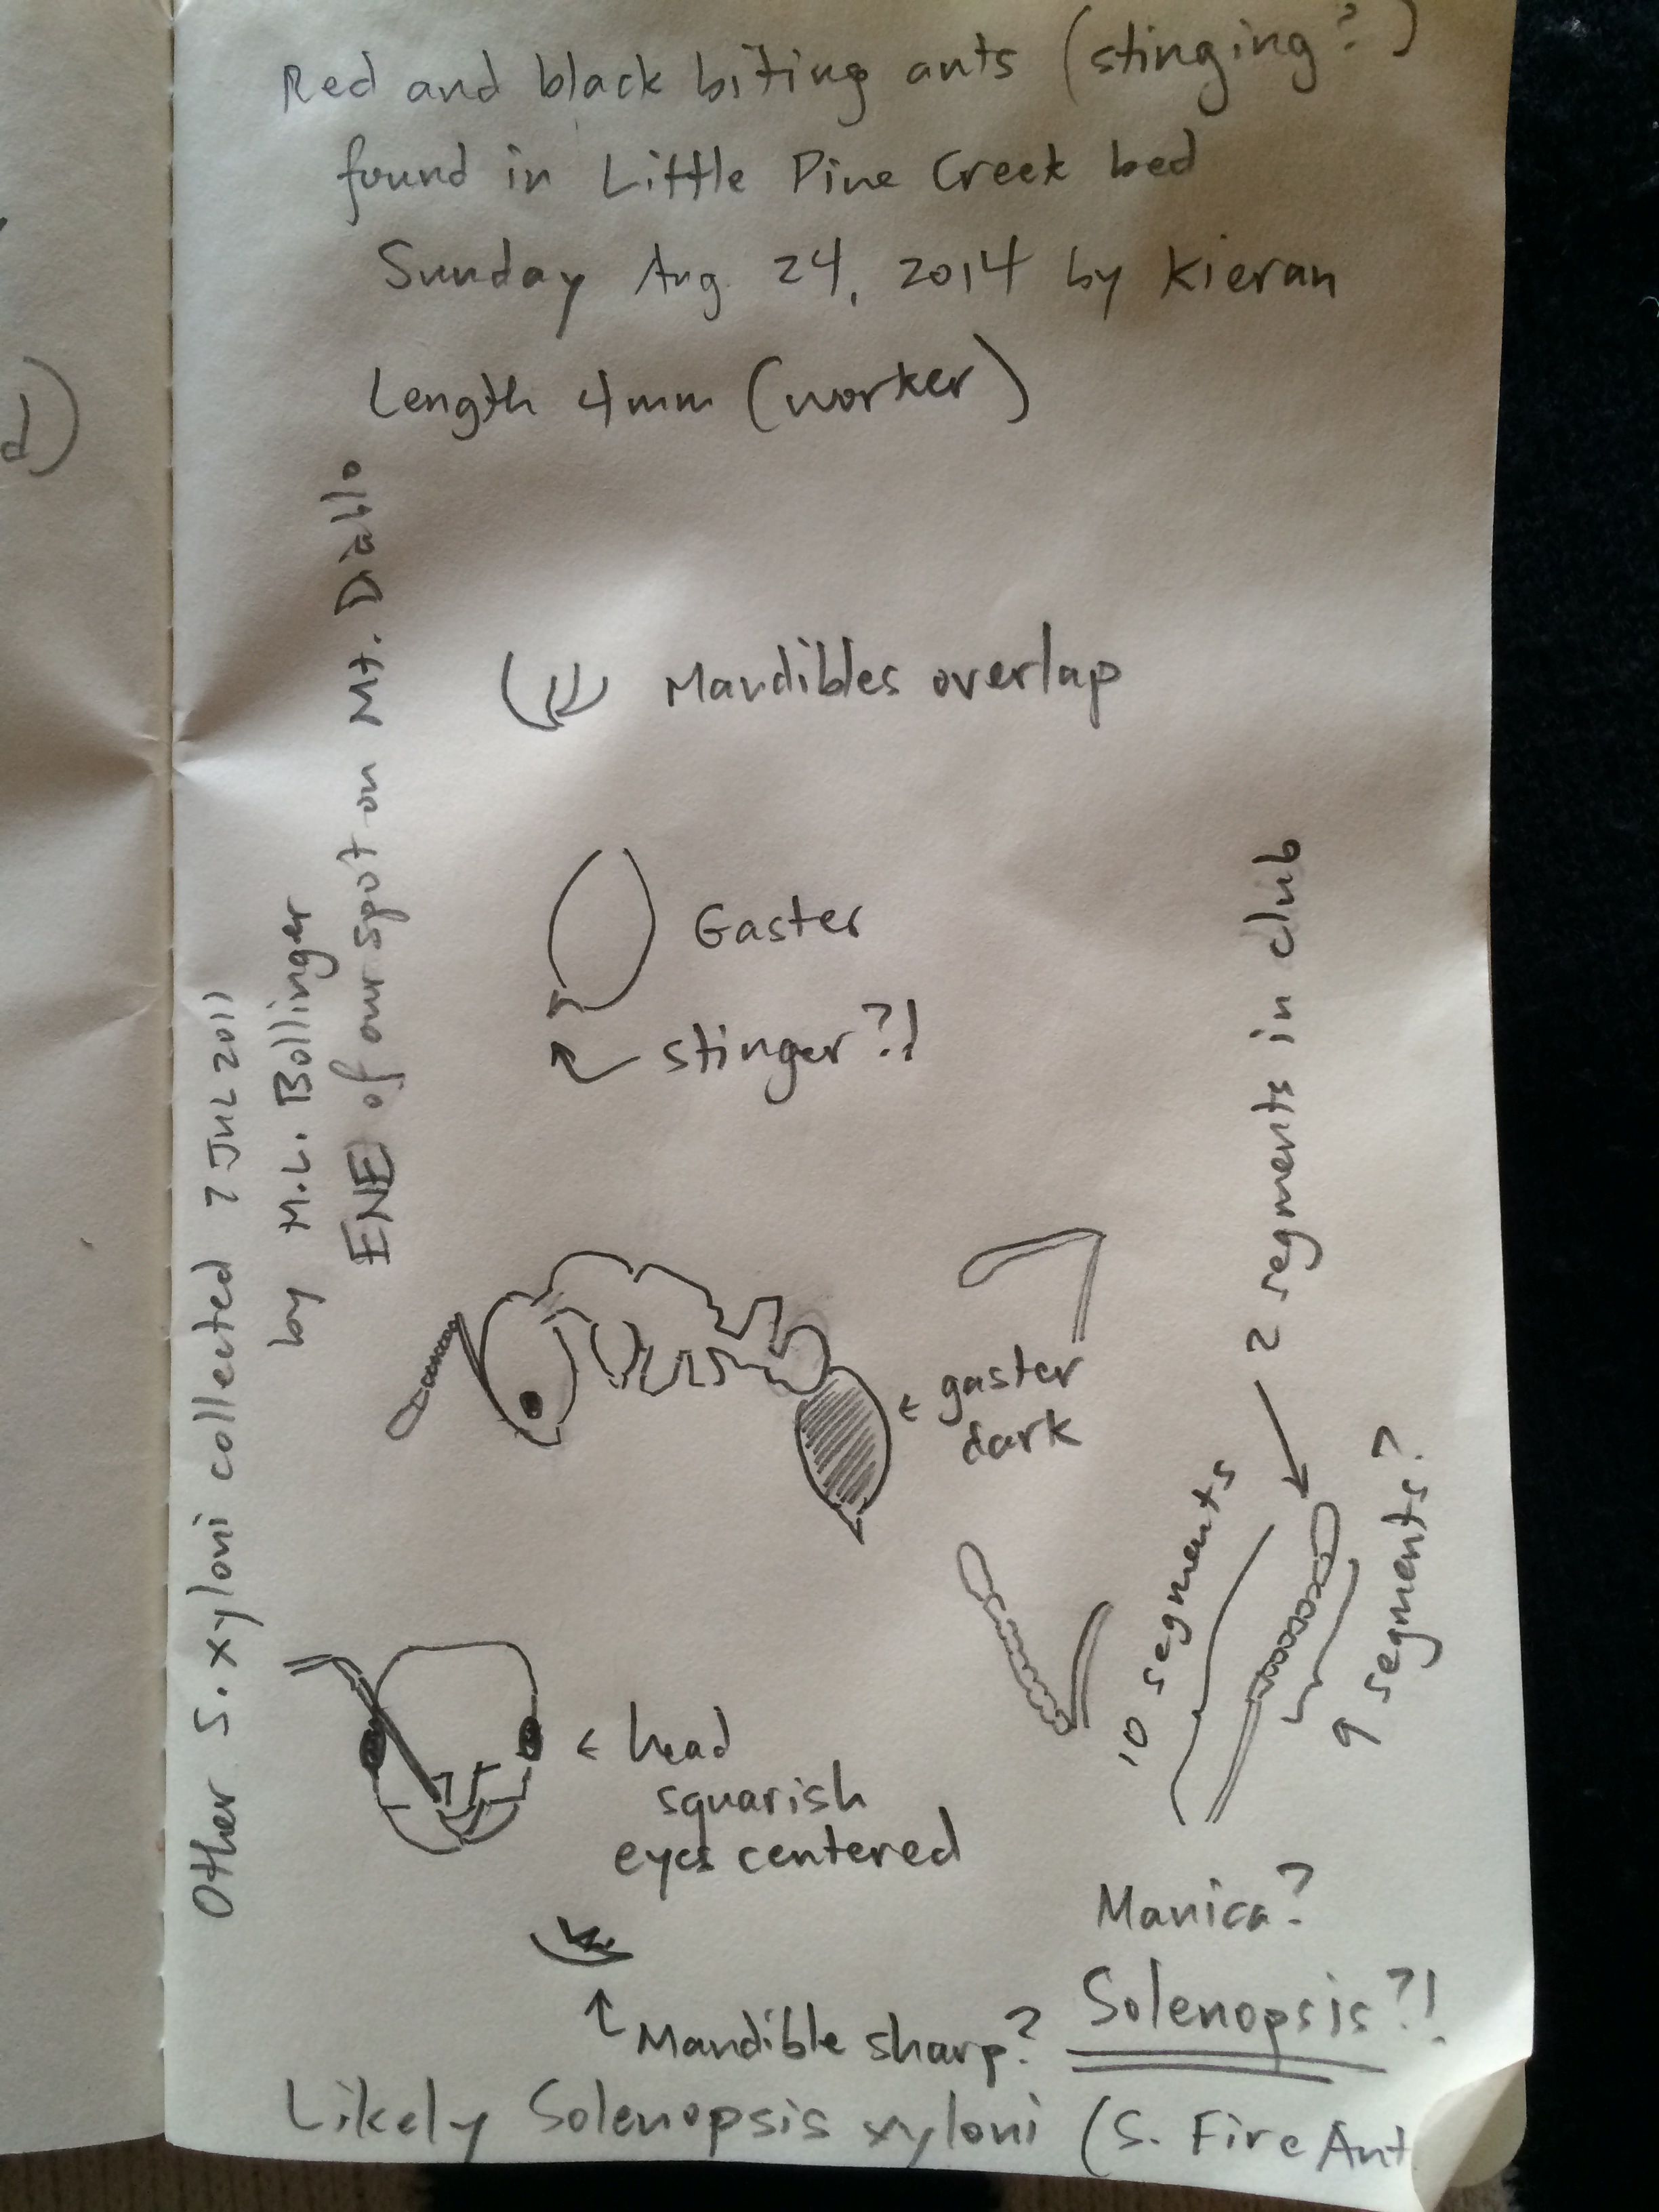 Red and black biting ants (stinging?)
found in Little Pine Creek bed
Sunday Aug. 24, 2014 by Kieran
Length 4mm (worker)
Mandibles overlap
Gaster
stinger?!
gaster
dark
2 segments in club
10 segments
9 segments?
head
squarish
eyes centered
Mandible sharp?
Manica?
Solenopsis?!
Likely Solenopsis xyloni (S. Fire Ant
Other S. xyloni collected 7 JUL 2011
by M.L. Bollinger
ENE of our spot on Mt. Diablo
d)